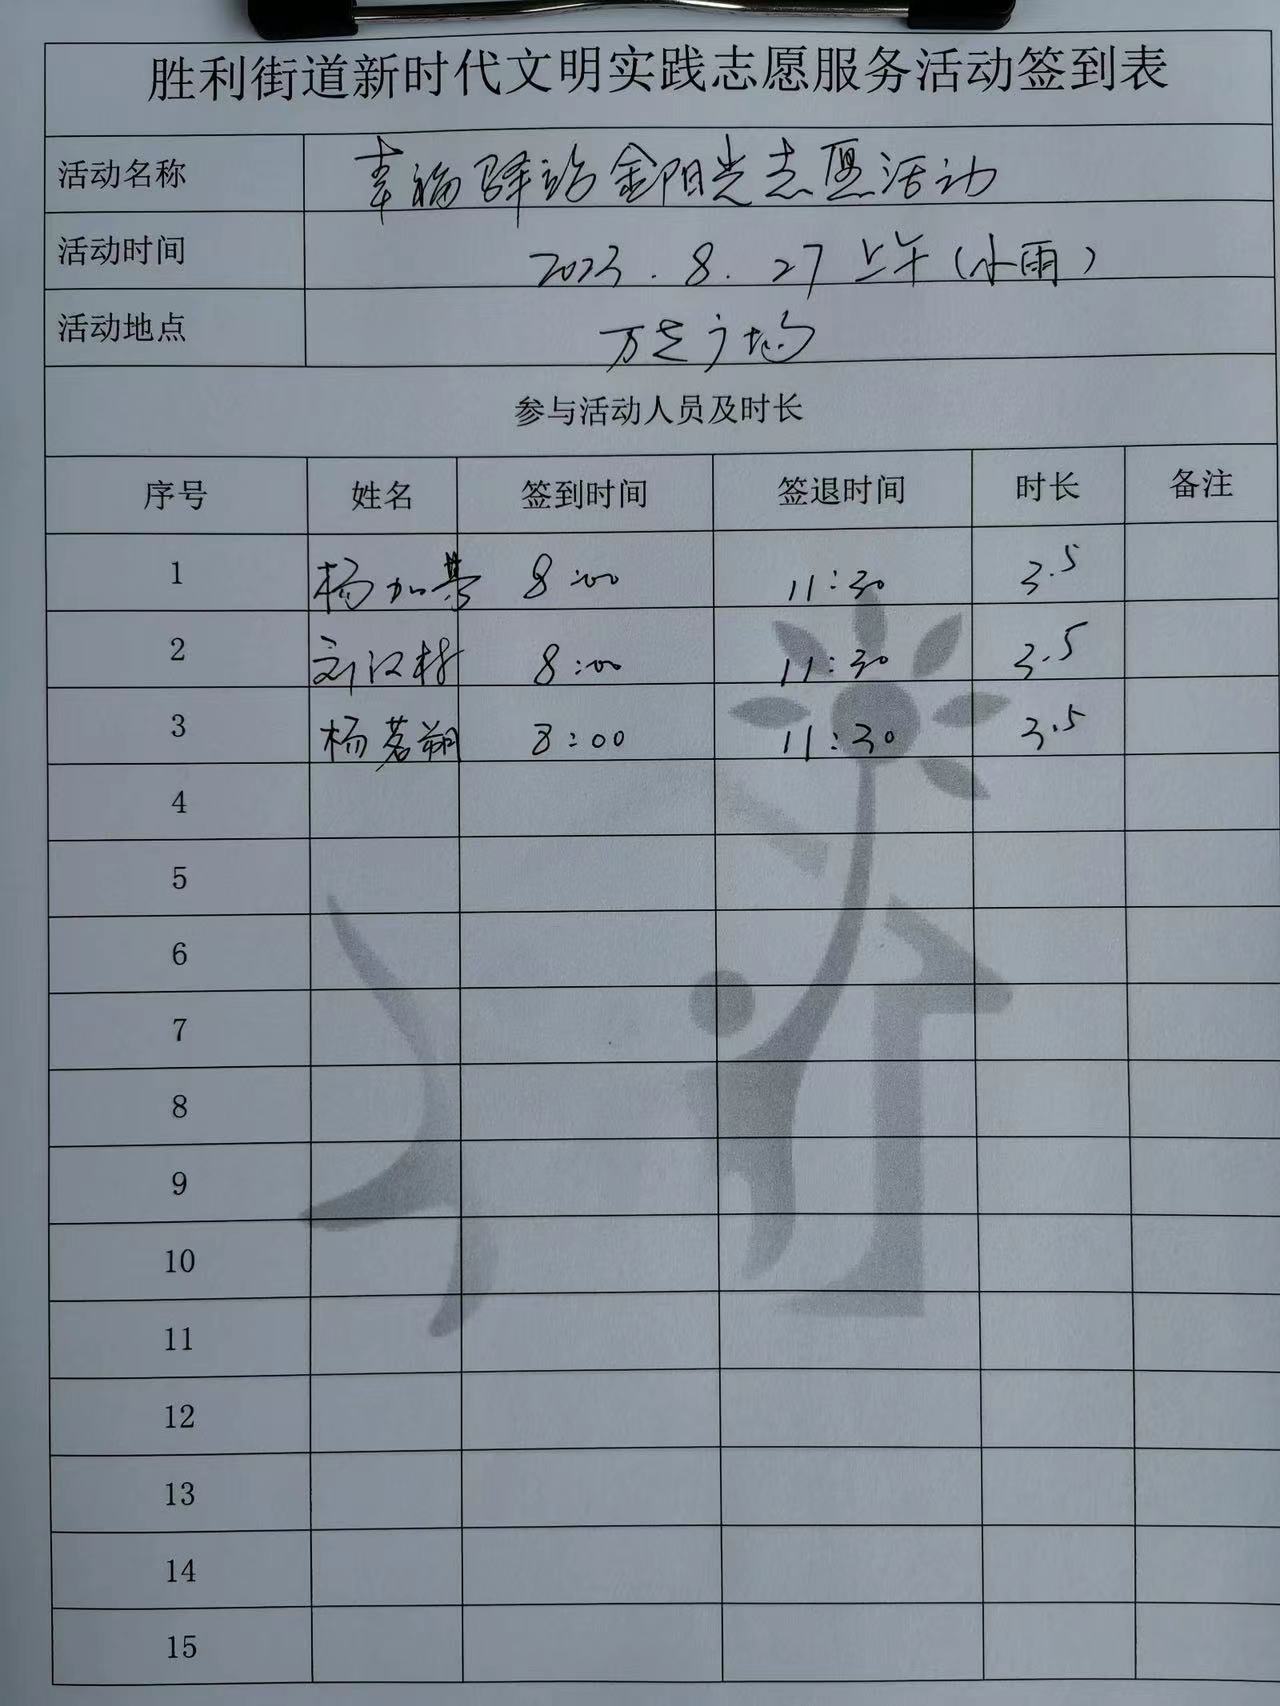 胜利街道新时代文明实践志愿服务活动签到表
活动名称 幸福驿站金阳光志愿活动
活动时间 2023.8.27上午(小雨)
活动地点 万达广场
参与活动人员及时长
序号 姓名 签到时间 签退时间 时长 备注
1 杨加 8:00 11:30 3.5
2 刘汉村 8:00 11:30 3.5
3 杨茗朔 8:00 11:30 3.5
4
5
6
7
8
9
10
11
12
13
14
15